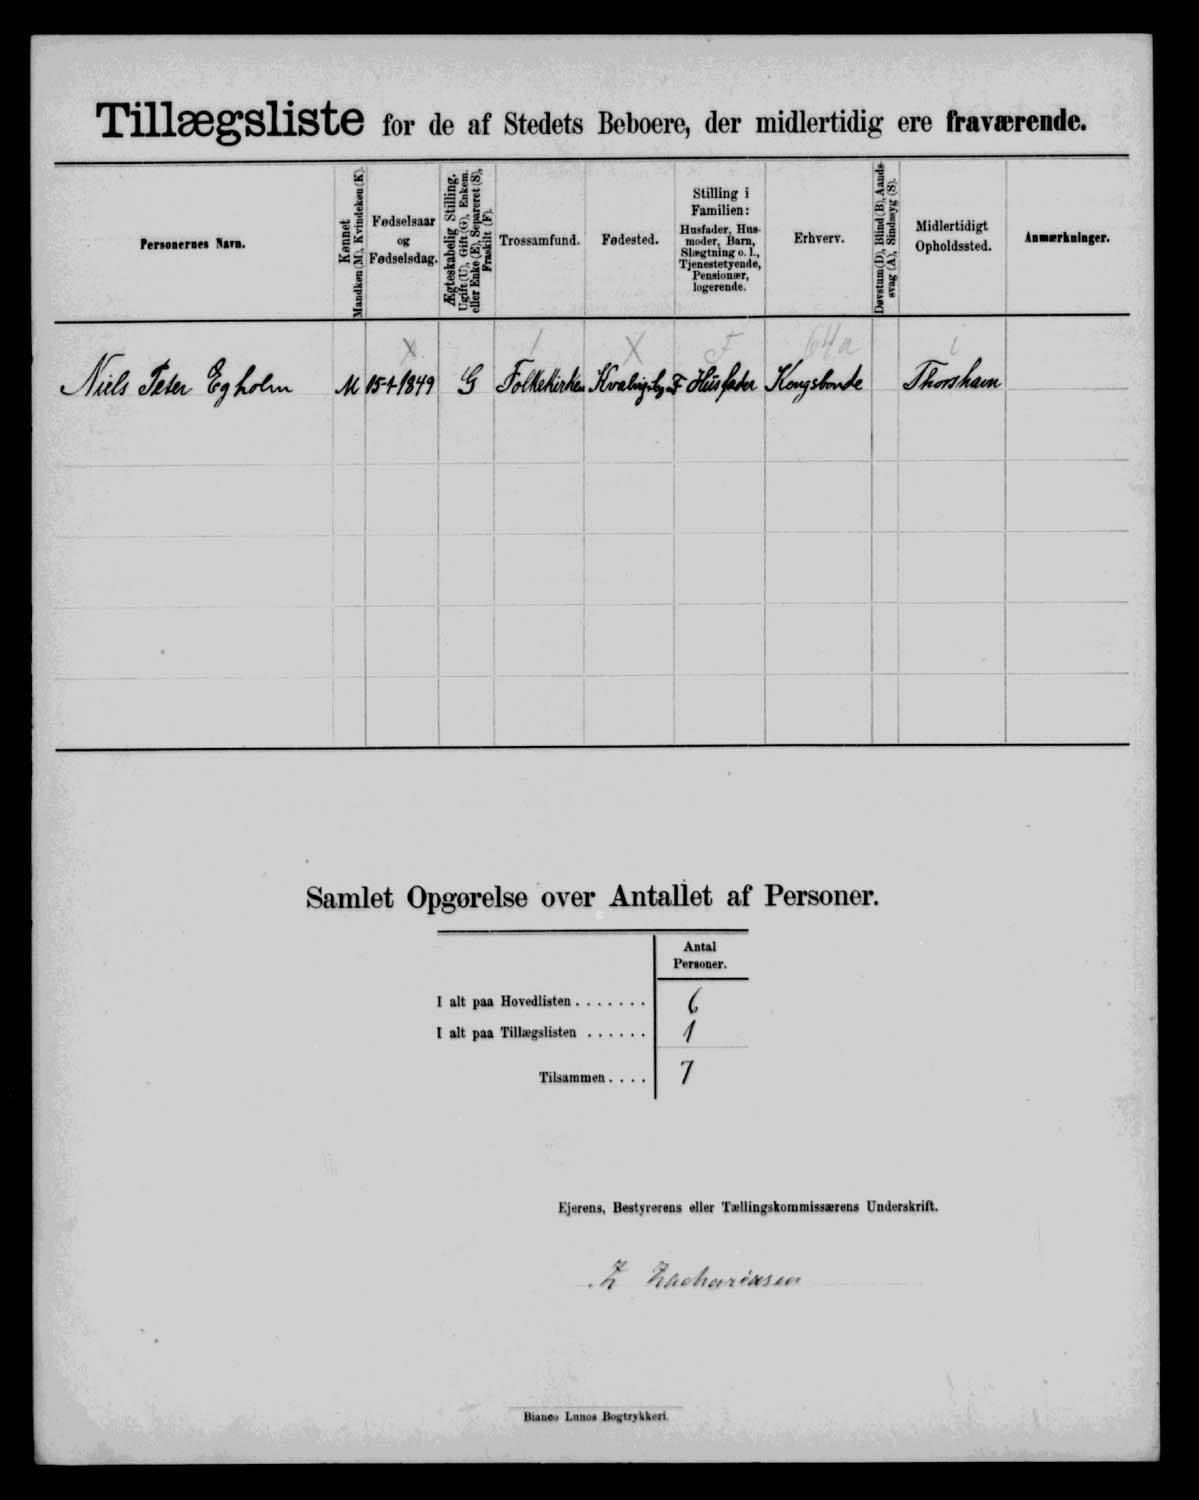 Tillægsliste for de af Stedets Beboere, der midlertidig ere fraværende.
Personernes Navn.
Kønnet
Mandkøn (M), Kvindekøn (K).
Fødselsaar
og
Fødselsdag.
Ægteskabelig Stilling.
Ugift (U), Gift (G), Enkem.
eller Enke (E), Separeret (S),
Fraskilt (F).
Trossamfund.
Fødested.
Stilling i
Familien:
Husfader, Hus-
moder, Barn,
Slægtning o. l.,
Tjenestetyende,
Pensionær,
logerende.
Erhverv.
Døvstum (D), Blind (B), Aands-
svag (A), Sindssyg (S).
Midlertidigt
Opholdssted.
Anmærkninger.
X X F 64a
Niels Peter Egholm M 1849 G Folkekirken F Husfader Kongsbonde Thorshavn
Samlet Opgørelse over Antallet af Personer.
Antal
Personer.
I alt paa Hovedlisten . . . . . . . 6
I alt paa Tillægslisten . . . . . . 1
Tilsammen . . . . 7
Ejerens, Bestyrerens eller Tællingskommissærens Underskrift.
Z Zachariasen
Bianco Lunos Bogtrykkeri.